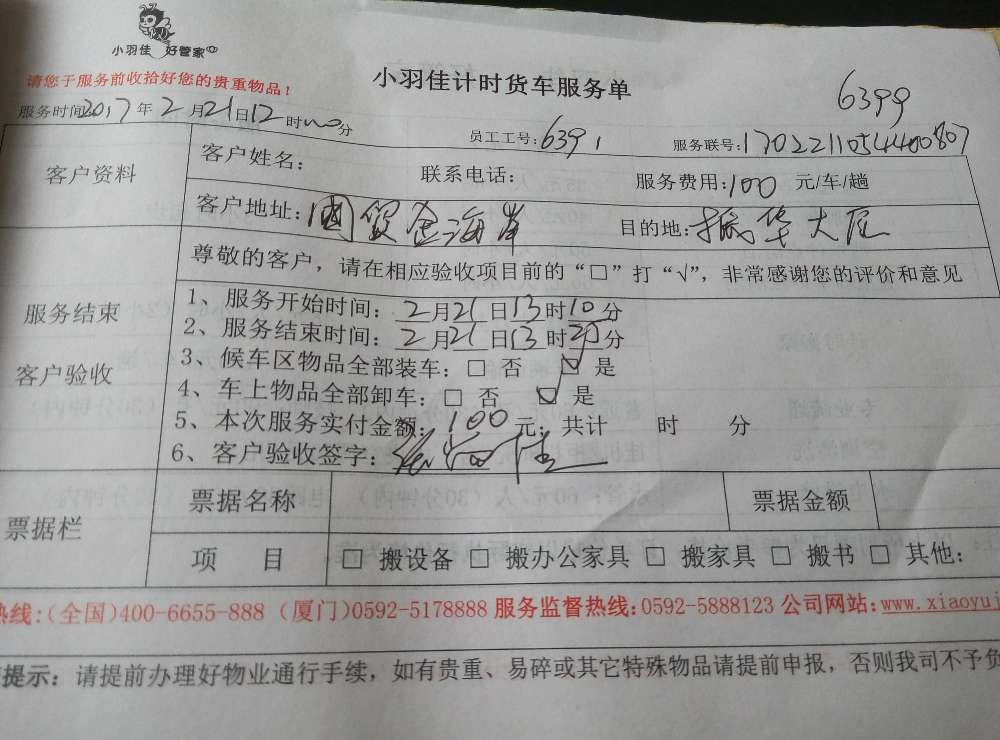 小羽佳 好管家
请您于服务前收拾好您的贵重物品!
小羽佳计时货车服务单
6399
服务时间2017年2月21日12时00分
员工工号:6391
服务联号:1702211054400807
客户资料
客户姓名: 联系电话: 服务费用:100 元/车/趟
客户地址:國贸金海岸 目的地:振华大厦
尊敬的客户,请在相应验收项目前的“□”打“√”,非常感谢您的评价和意见
服务结束
客户验收
1、服务开始时间:2月21日13时10分
2、服务结束时间:2月21日13时20分
3、候车区物品全部装车:□ 否 ☑ 是
4、车上物品全部卸车:□ 否 ☑ 是
5、本次服务实付金额:100元;共计 时 分
6、客户验收签字:
票据栏
票据名称 票据金额
项 目 □ 搬设备 □ 搬办公家具 □ 搬家具 □ 搬书 □ 其他:
热线:(全国)400-6655-888 (厦门)0592-5178888 服务监督热线:0592-5888123 公司网站:www.xiaoyuj
提示:请提前办理好物业通行手续,如有贵重、易碎或其它特殊物品请提前申报,否则我司不予负